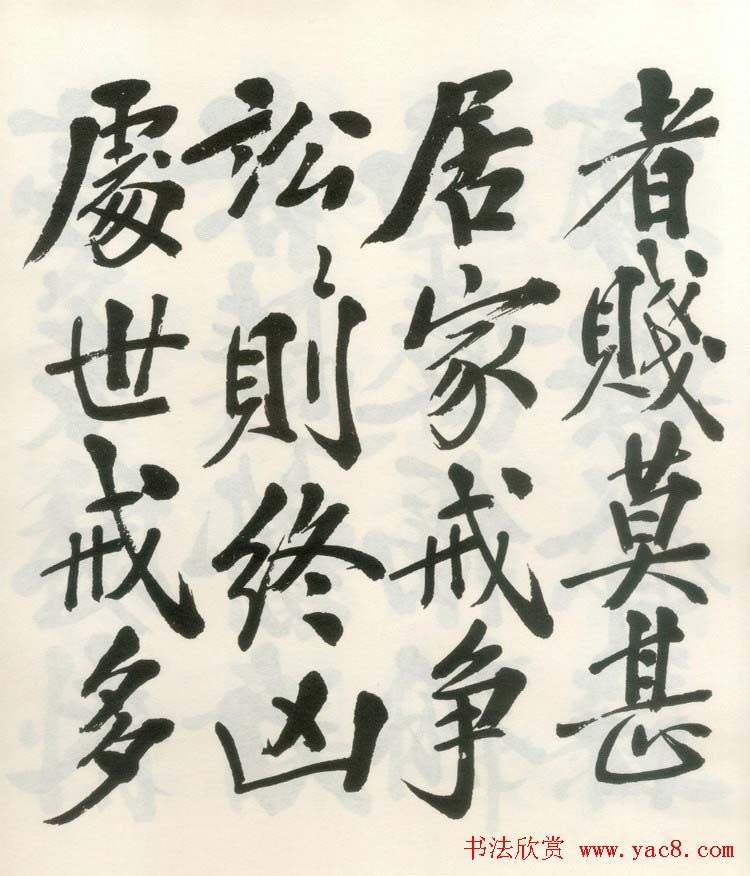 者賤莫甚
居家戒争
訟〻則終凶
處世戒多
书法欣赏 www.yac8.com